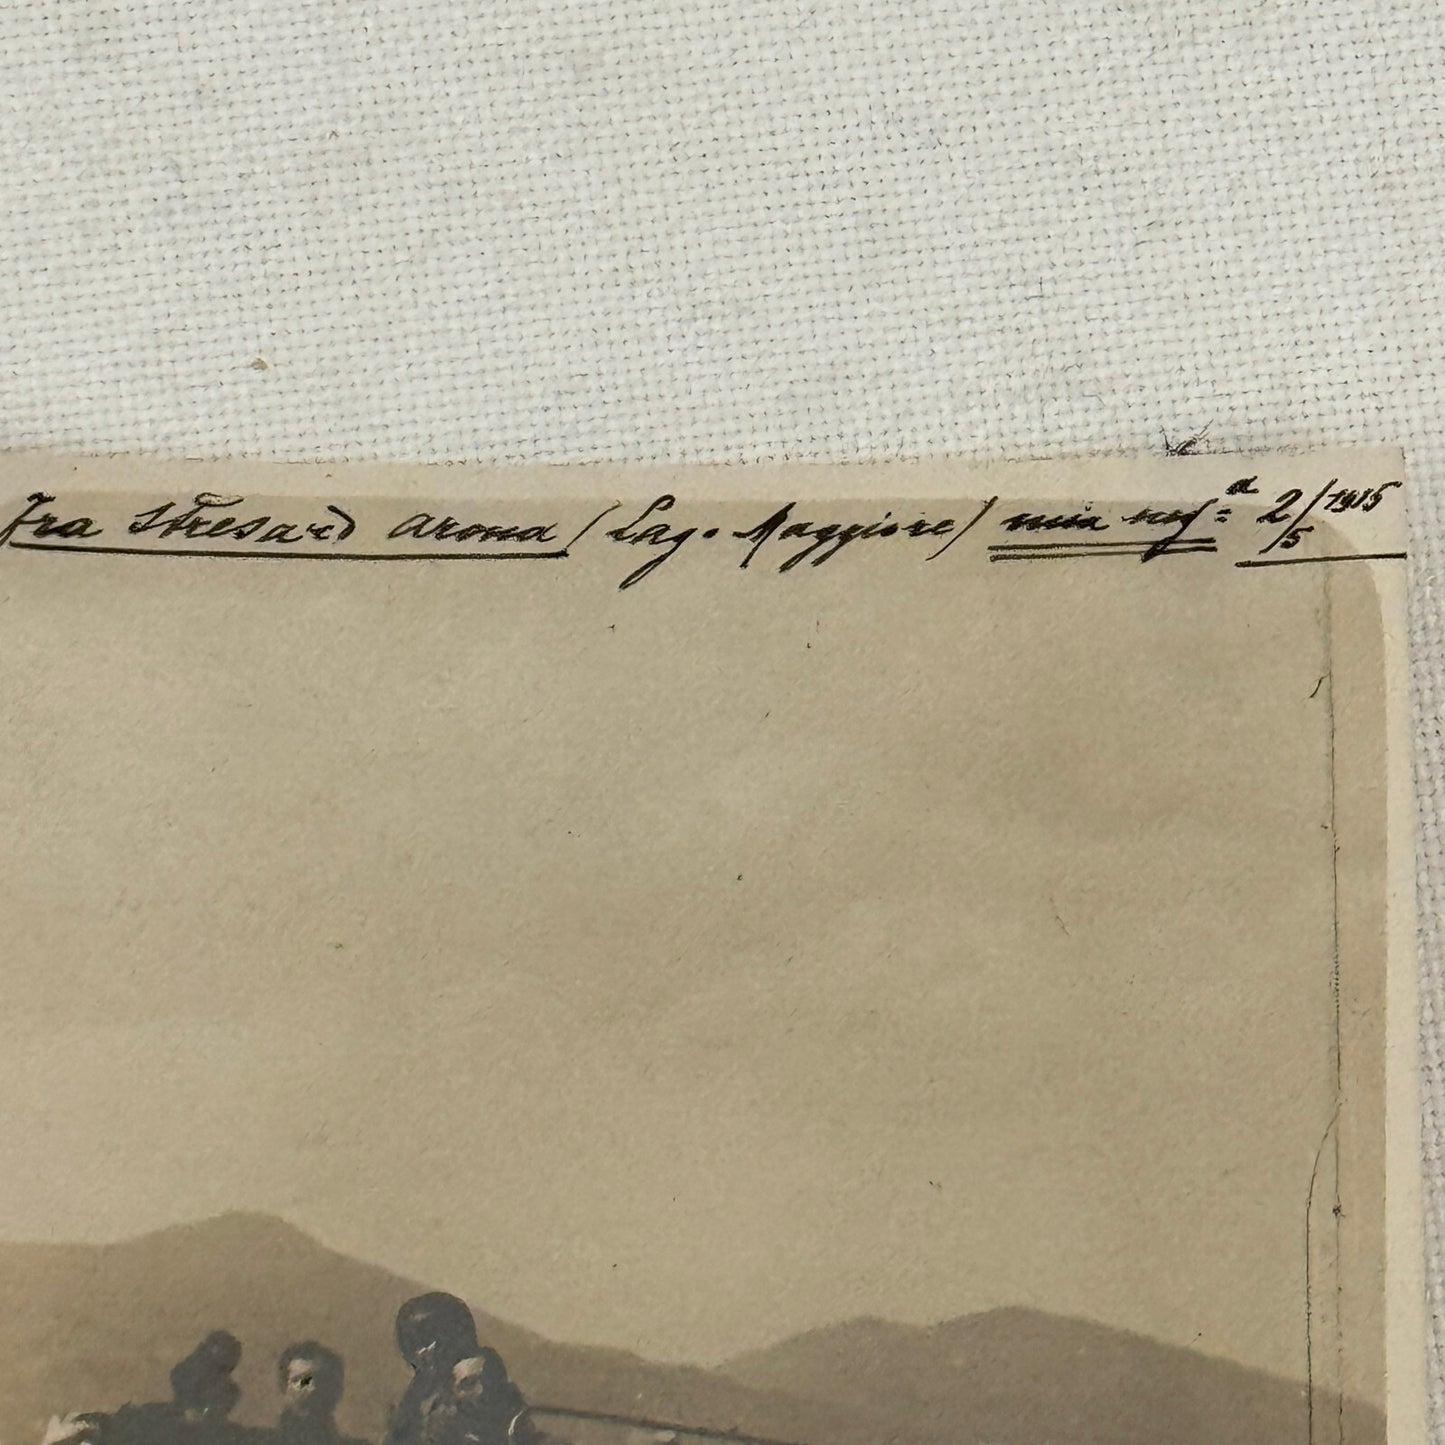 Fra Stresa ed Arona (Lag. Maggiore) mia neg=a 2/5 1915